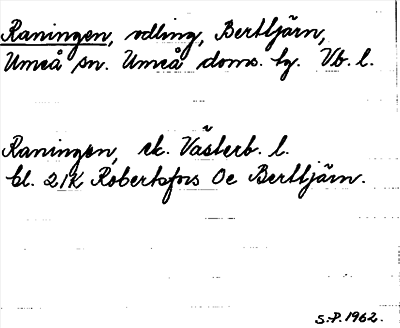 Raningen, odling, Bertljärn,
Umeå sn. Umeå doms. tg. Vb. l.
Raningen, ek. Västerb. l.
bl. 21K Robertsfors Oc Bertljärn.
S.P. 1962.